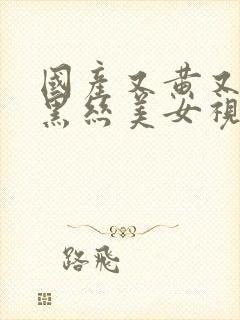 國產又黃又
黑絲美女視
路飛